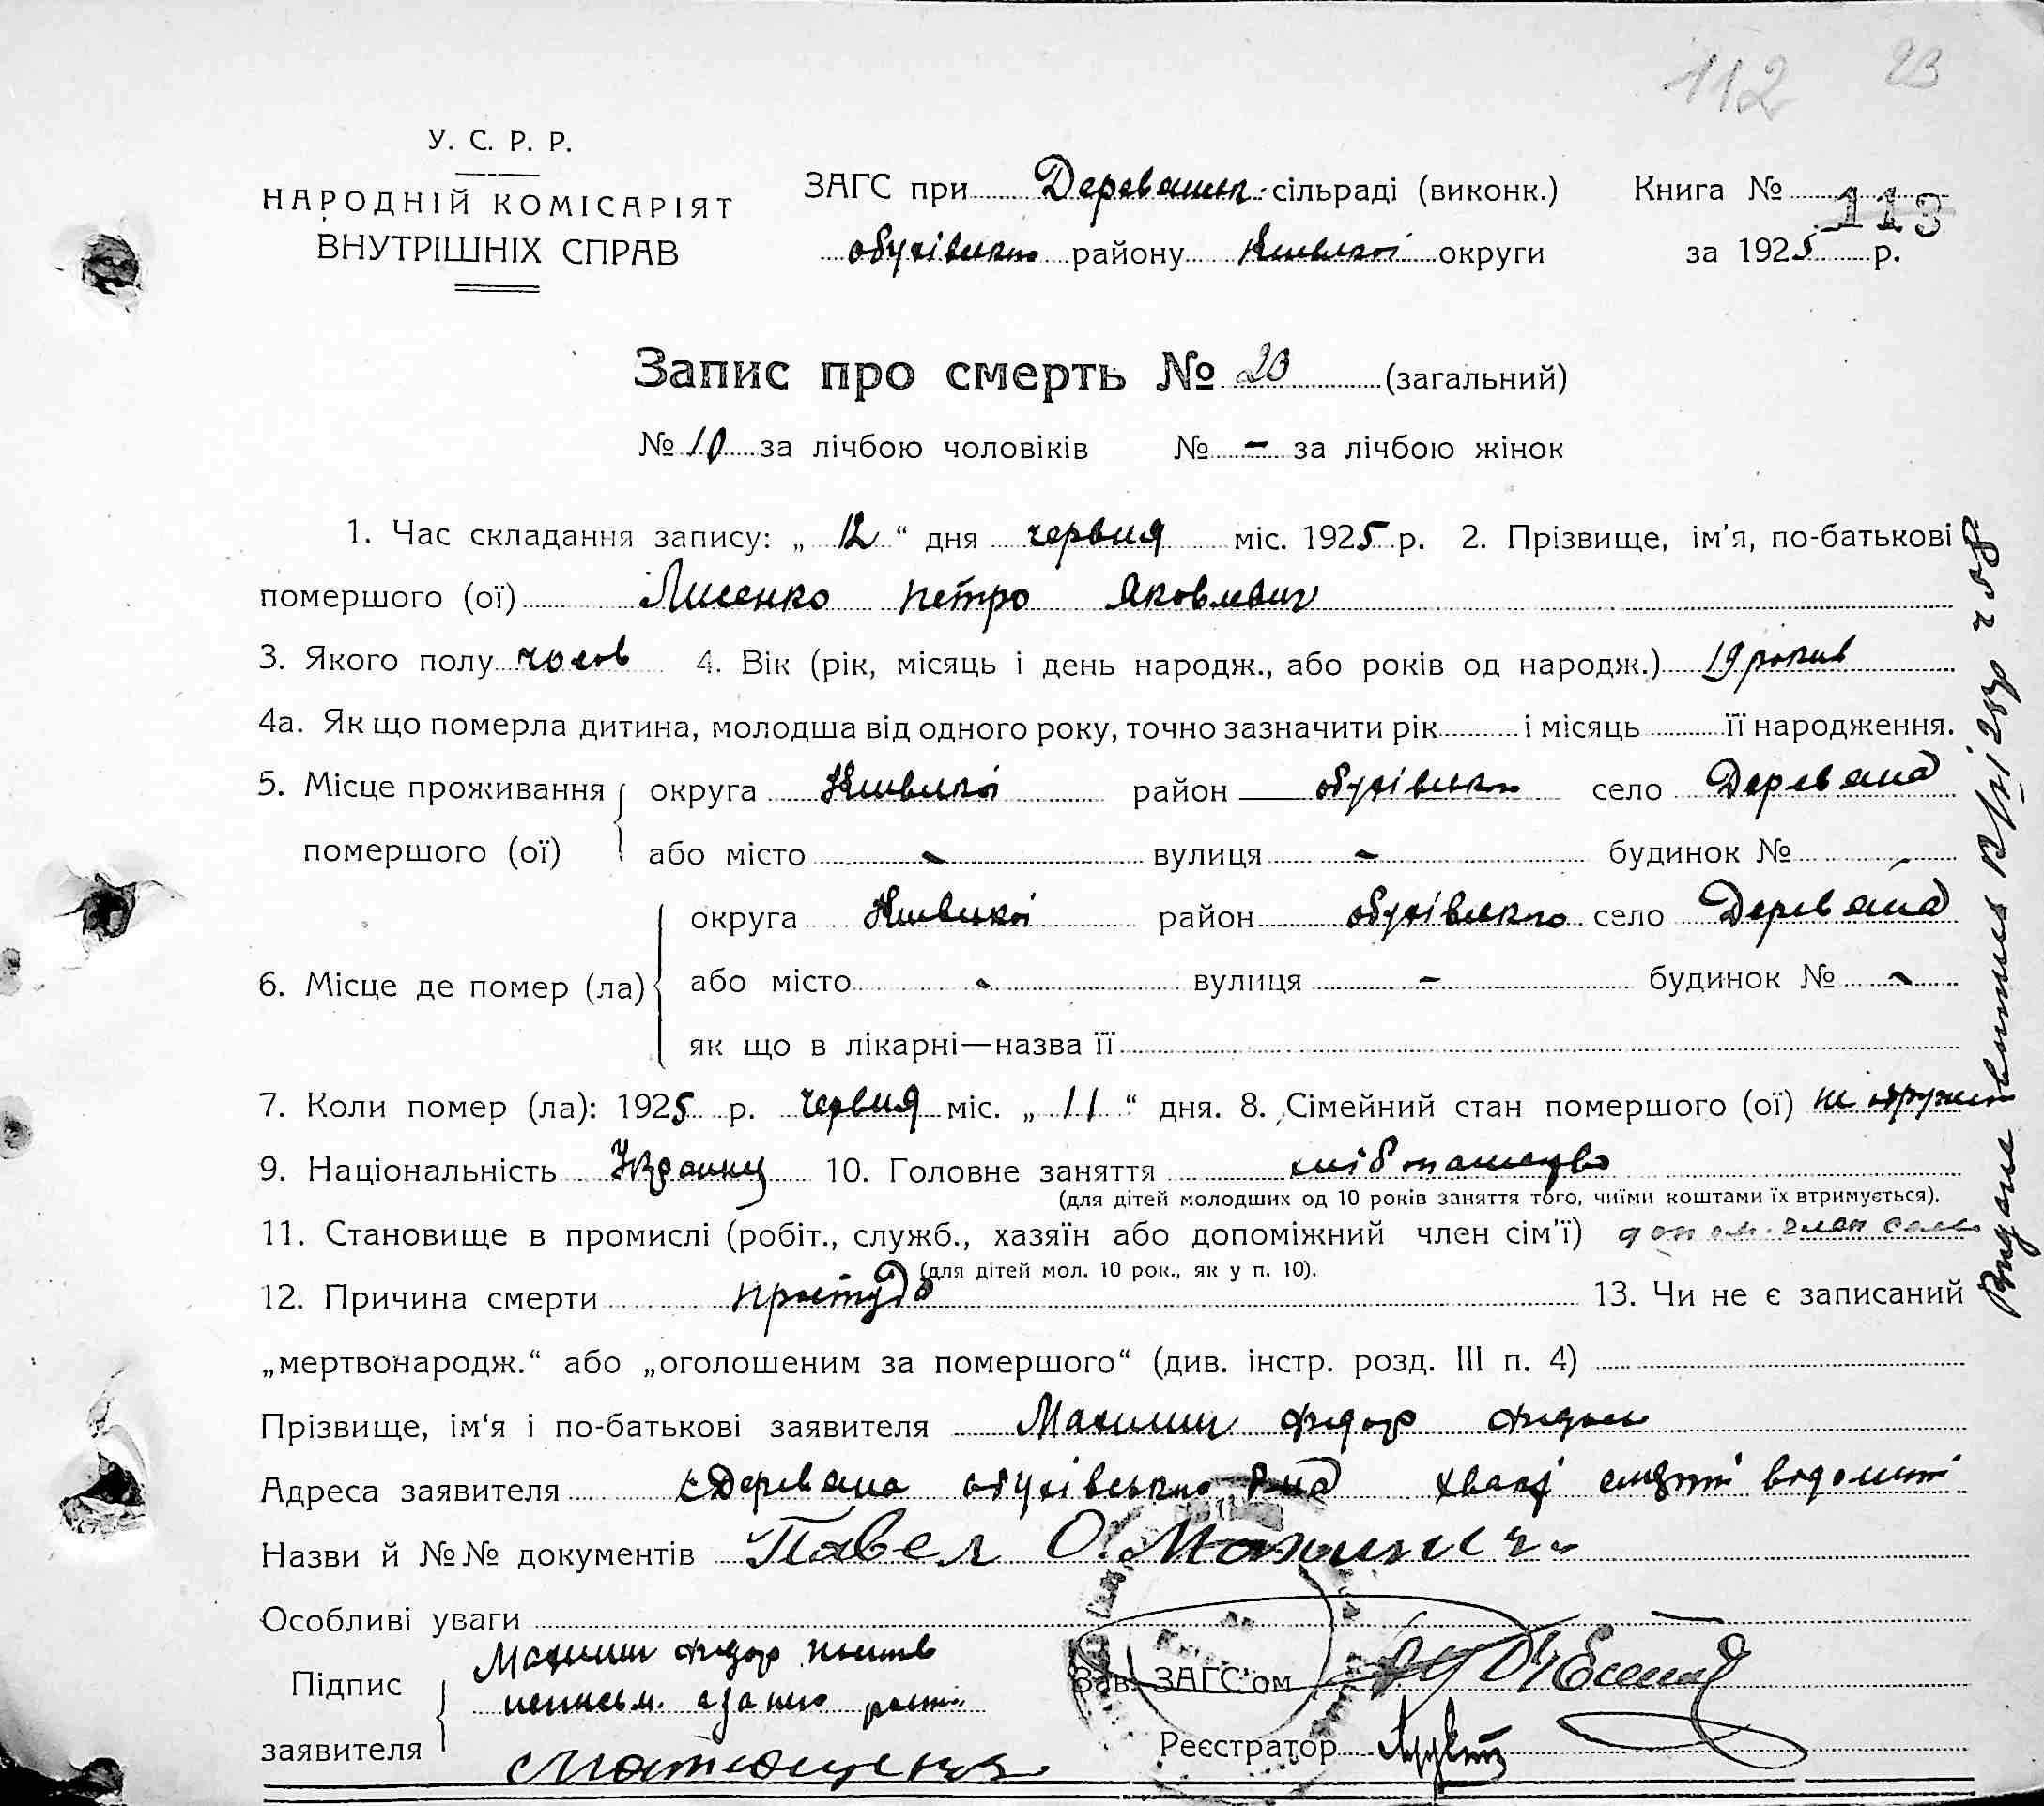 112 23
У. С. Р. Р.
НАРОДНІЙ КОМІСАРІЯТ
ВНУТРІШНІХ СПРАВ
ЗАГС при Деревяньк. сільраді (виконк.) Книга № 113
обухівсько району Київської округи за 1925 р.
Запис про смерть № 23 (загальний)
№ 10 за лічбою чоловіків № - за лічбою жінок
1. Час складання запису: „ 12 “ дня червня міс. 1925 р. 2. Прізвище, ім'я, по-батькові
помершого (ої) Лисенко Петро Яковлевич
3. Якого полу чолов 4. Вік (рік, місяць і день народж., або років од народж.) 19 років
4а. Як що померла дитина, молодша від одного року, точно зазначити рік і місяць її народження.
5. Місце проживання округа Київської район обухівсько село Деревяна
помершого (ої) або місто - вулиця - будинок № -
6. Місце де помер (ла) округа Київської район обухівсько село Деревяна
або місто - вулиця - будинок № -
як що в лікарні—назва її
7. Коли помер (ла): 1925 р. червня міс. „ 11 “ дня. 8. Сімейний стан помершого (ої) не одружен
9. Національність Украинц 10. Головне заняття хлібопашество
(для дітей молодших од 10 років заняття того, чиїми коштами їх втримується).
11. Становище в промислі (робіт., служб., хазяїн або допоміжний член сім'ї) допом. член семи
(для дітей мол. 10 рок., як у п. 10).
12. Причина смерти простуда 13. Чи не є записаний
„мертвонародж.“ або „оголошеним за помершого“ (див. інстр. розд. III п. 4)
Прізвище, ім‘я і по-батькові заявителя Махинич Федор
Адреса заявителя с Деревяна обухівсько смерті
Назви й №№ документів Павел О. Махинич
Особливі уваги
Підпис заявителя Махинич Федор
неписьм. а за него
Зав. ЗАГС'ом
Реєстратор